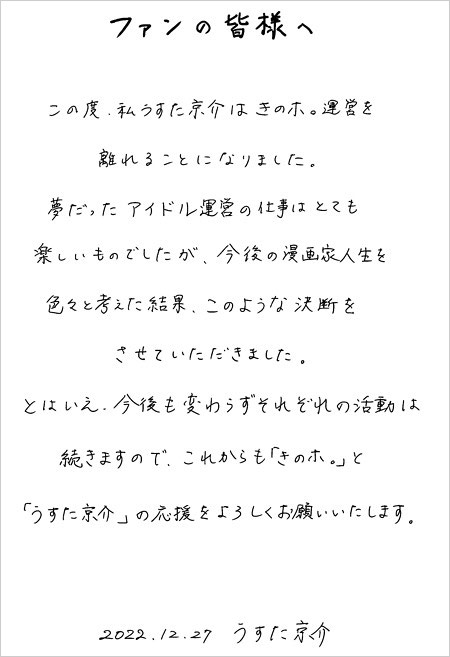 ファンの皆様へ
この度、私うすた京介はきのホ。運営を
離れることになりました。
夢だったアイドル運営の仕事はとても
楽しいものでしたが、今後の漫画家人生を
色々と考えた結果、このような決断を
させていただきました。
とはいえ、今後も変わらずそれぞれの活動は
続きますので、これからも「きのホ。」と
「うすた京介」の応援をよろしくお願いいたします。
2022.12.27 うすた京介